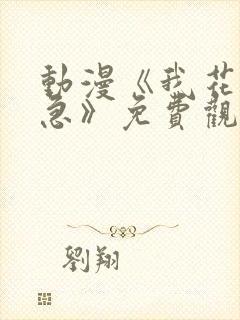 動漫《我花
急》免費觀
劉翔